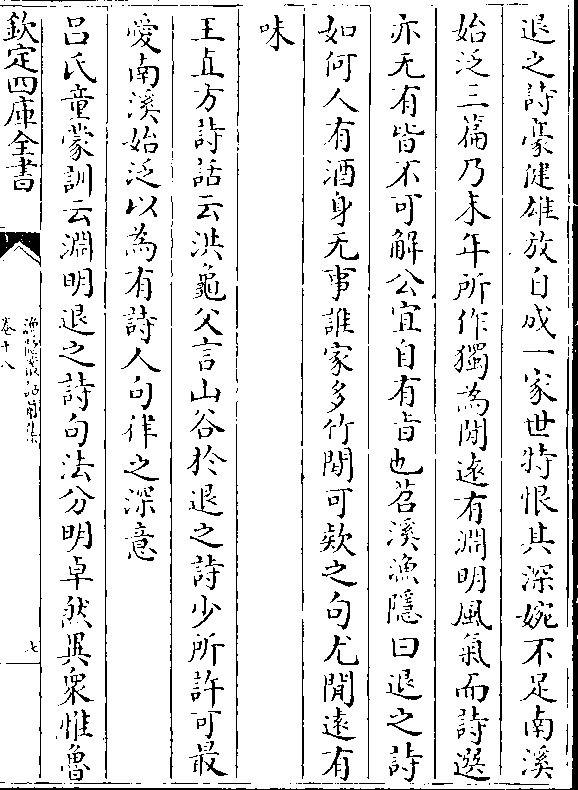 退之詩豪健雄放自成一家世特恨其深婉不足南溪
始泛三篇乃末年所作獨為閒逺有淵明風氣而詩選
亦无有皆不可解公宜自有旨也苕溪漁隱曰退之詩
如何人有酒身无事誰家多竹門可欵之句尤閒逺有
味
王直方詩話云洪龜父言山谷於退之詩少所許可最
愛南溪始泛以為有詩人句律之深意
吕氏童蒙訓云淵明退之詩句法分明卓然異衆惟魯
欽定四庫全書
漁隱叢話前集
卷十八
七